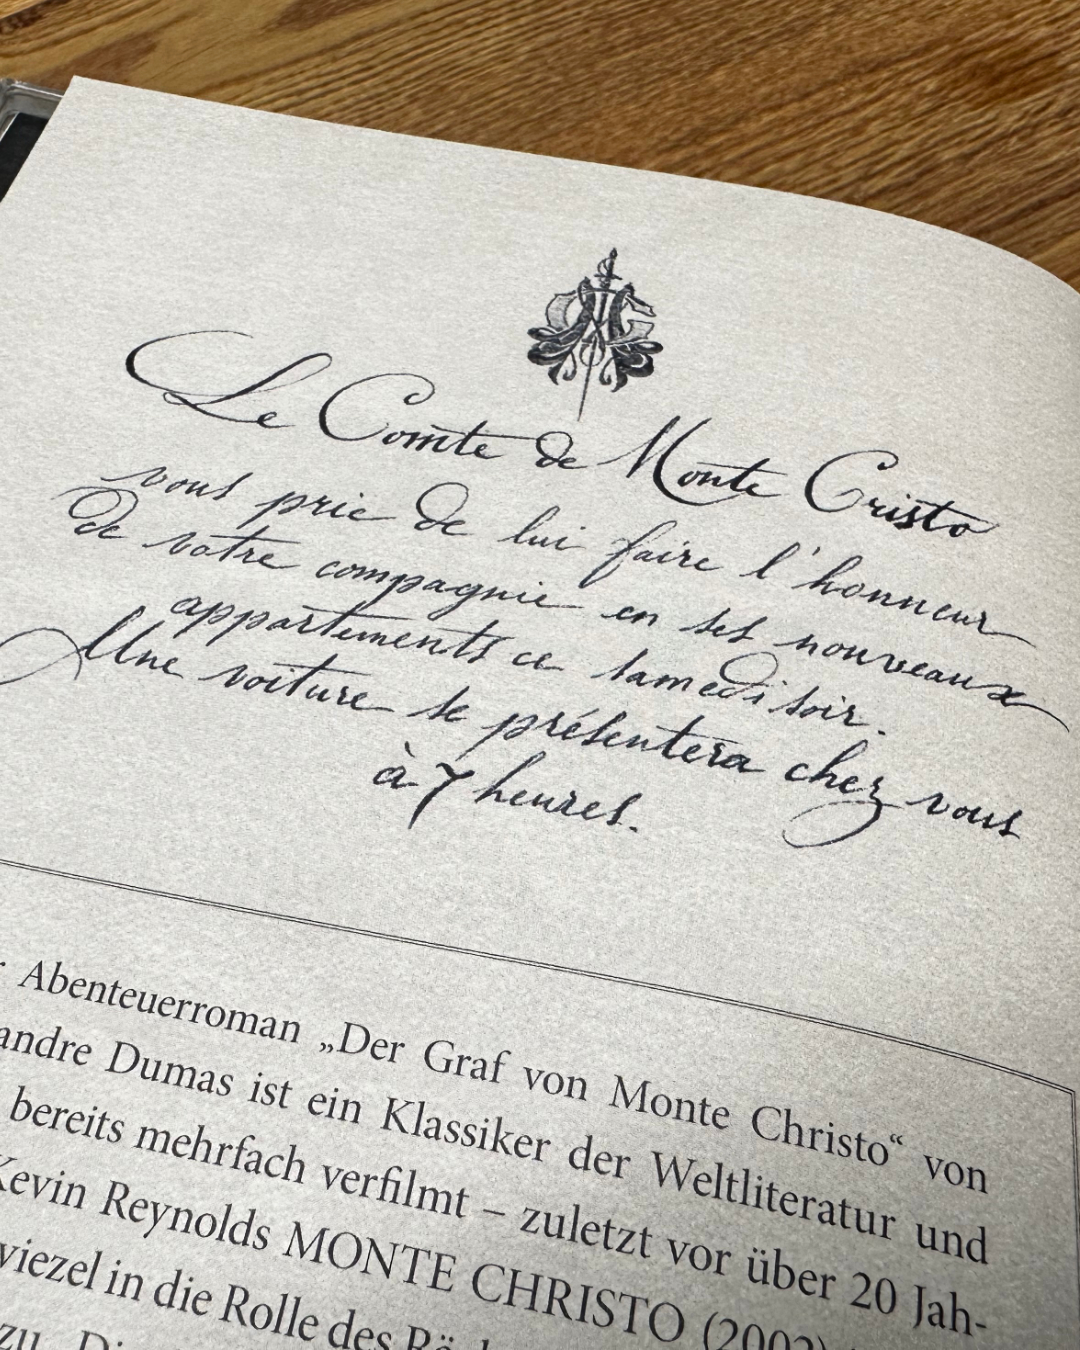 Le Comte de Monte Cristo
vous prie de lui faire l'honneur
de votre compagnie en ses nouveaux
appartements ce samedi soir.
Une voiture se présentera chez vous
à 7 heures.
Abenteuerroman „Der Graf von Monte Christo“ von
andre Dumas ist ein Klassiker der Weltliteratur und
bereits mehrfach verfilmt – zuletzt vor über 20 Jah-
Kevin Reynolds MONTE CHRISTO (2002)
viezel in die Rolle des
zu. Di